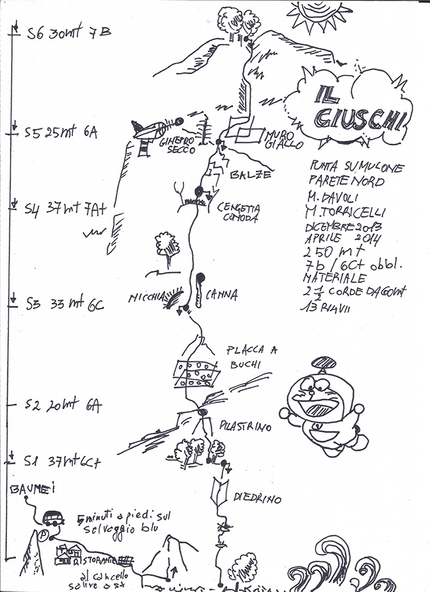 S6 30mt 7B
IL
GIUSCHI
S5 25mt 6A
GINEPRO
SECCO
MURO
GIALLO
BALZE
S4 37mt 7A+
CENGETTA
COMODA
PUNTA SU MULONE
PARETE NORD
M. DAVOLI
M. TORRICELLI
DICEMBRE 2013
APRILE 2014
250 mt
7b / 6C+ obbl.
MATERIALE
2 CORDE DA 60mt
13 RINVII
S3 33mt 6C
NICCHIA
CANNA
PLACCA A
BUCHI
S2 20mt 6A
PILASTRINO
S1 37mt 6C+
DIEDRINO
BAUNEI
5 minuti a piedi sul
selvaggio blu
P
RISTORANTE
al cancello
salire a sx